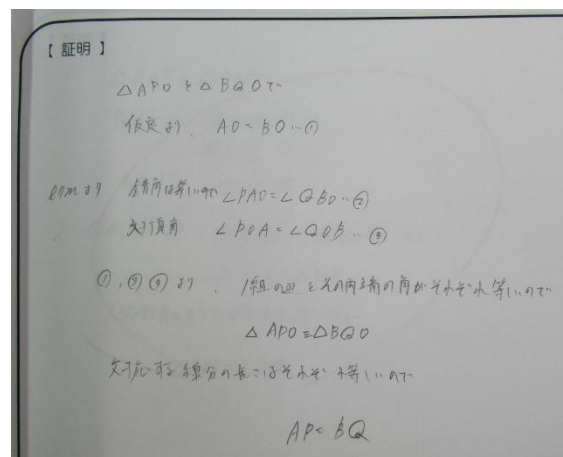 【 証明 】
△APOと△BQOで
仮定より、AO=BO…①
l//mより 錯角は等しいので ∠PAO=∠QBO…②
対頂角 ∠POA=∠QOB…③
①,②③より、1組の辺とその両端の角がそれぞれ等しいので
△APO≡△BQO
対応する線分の長さはそれぞれ等しいので
AP=BQ